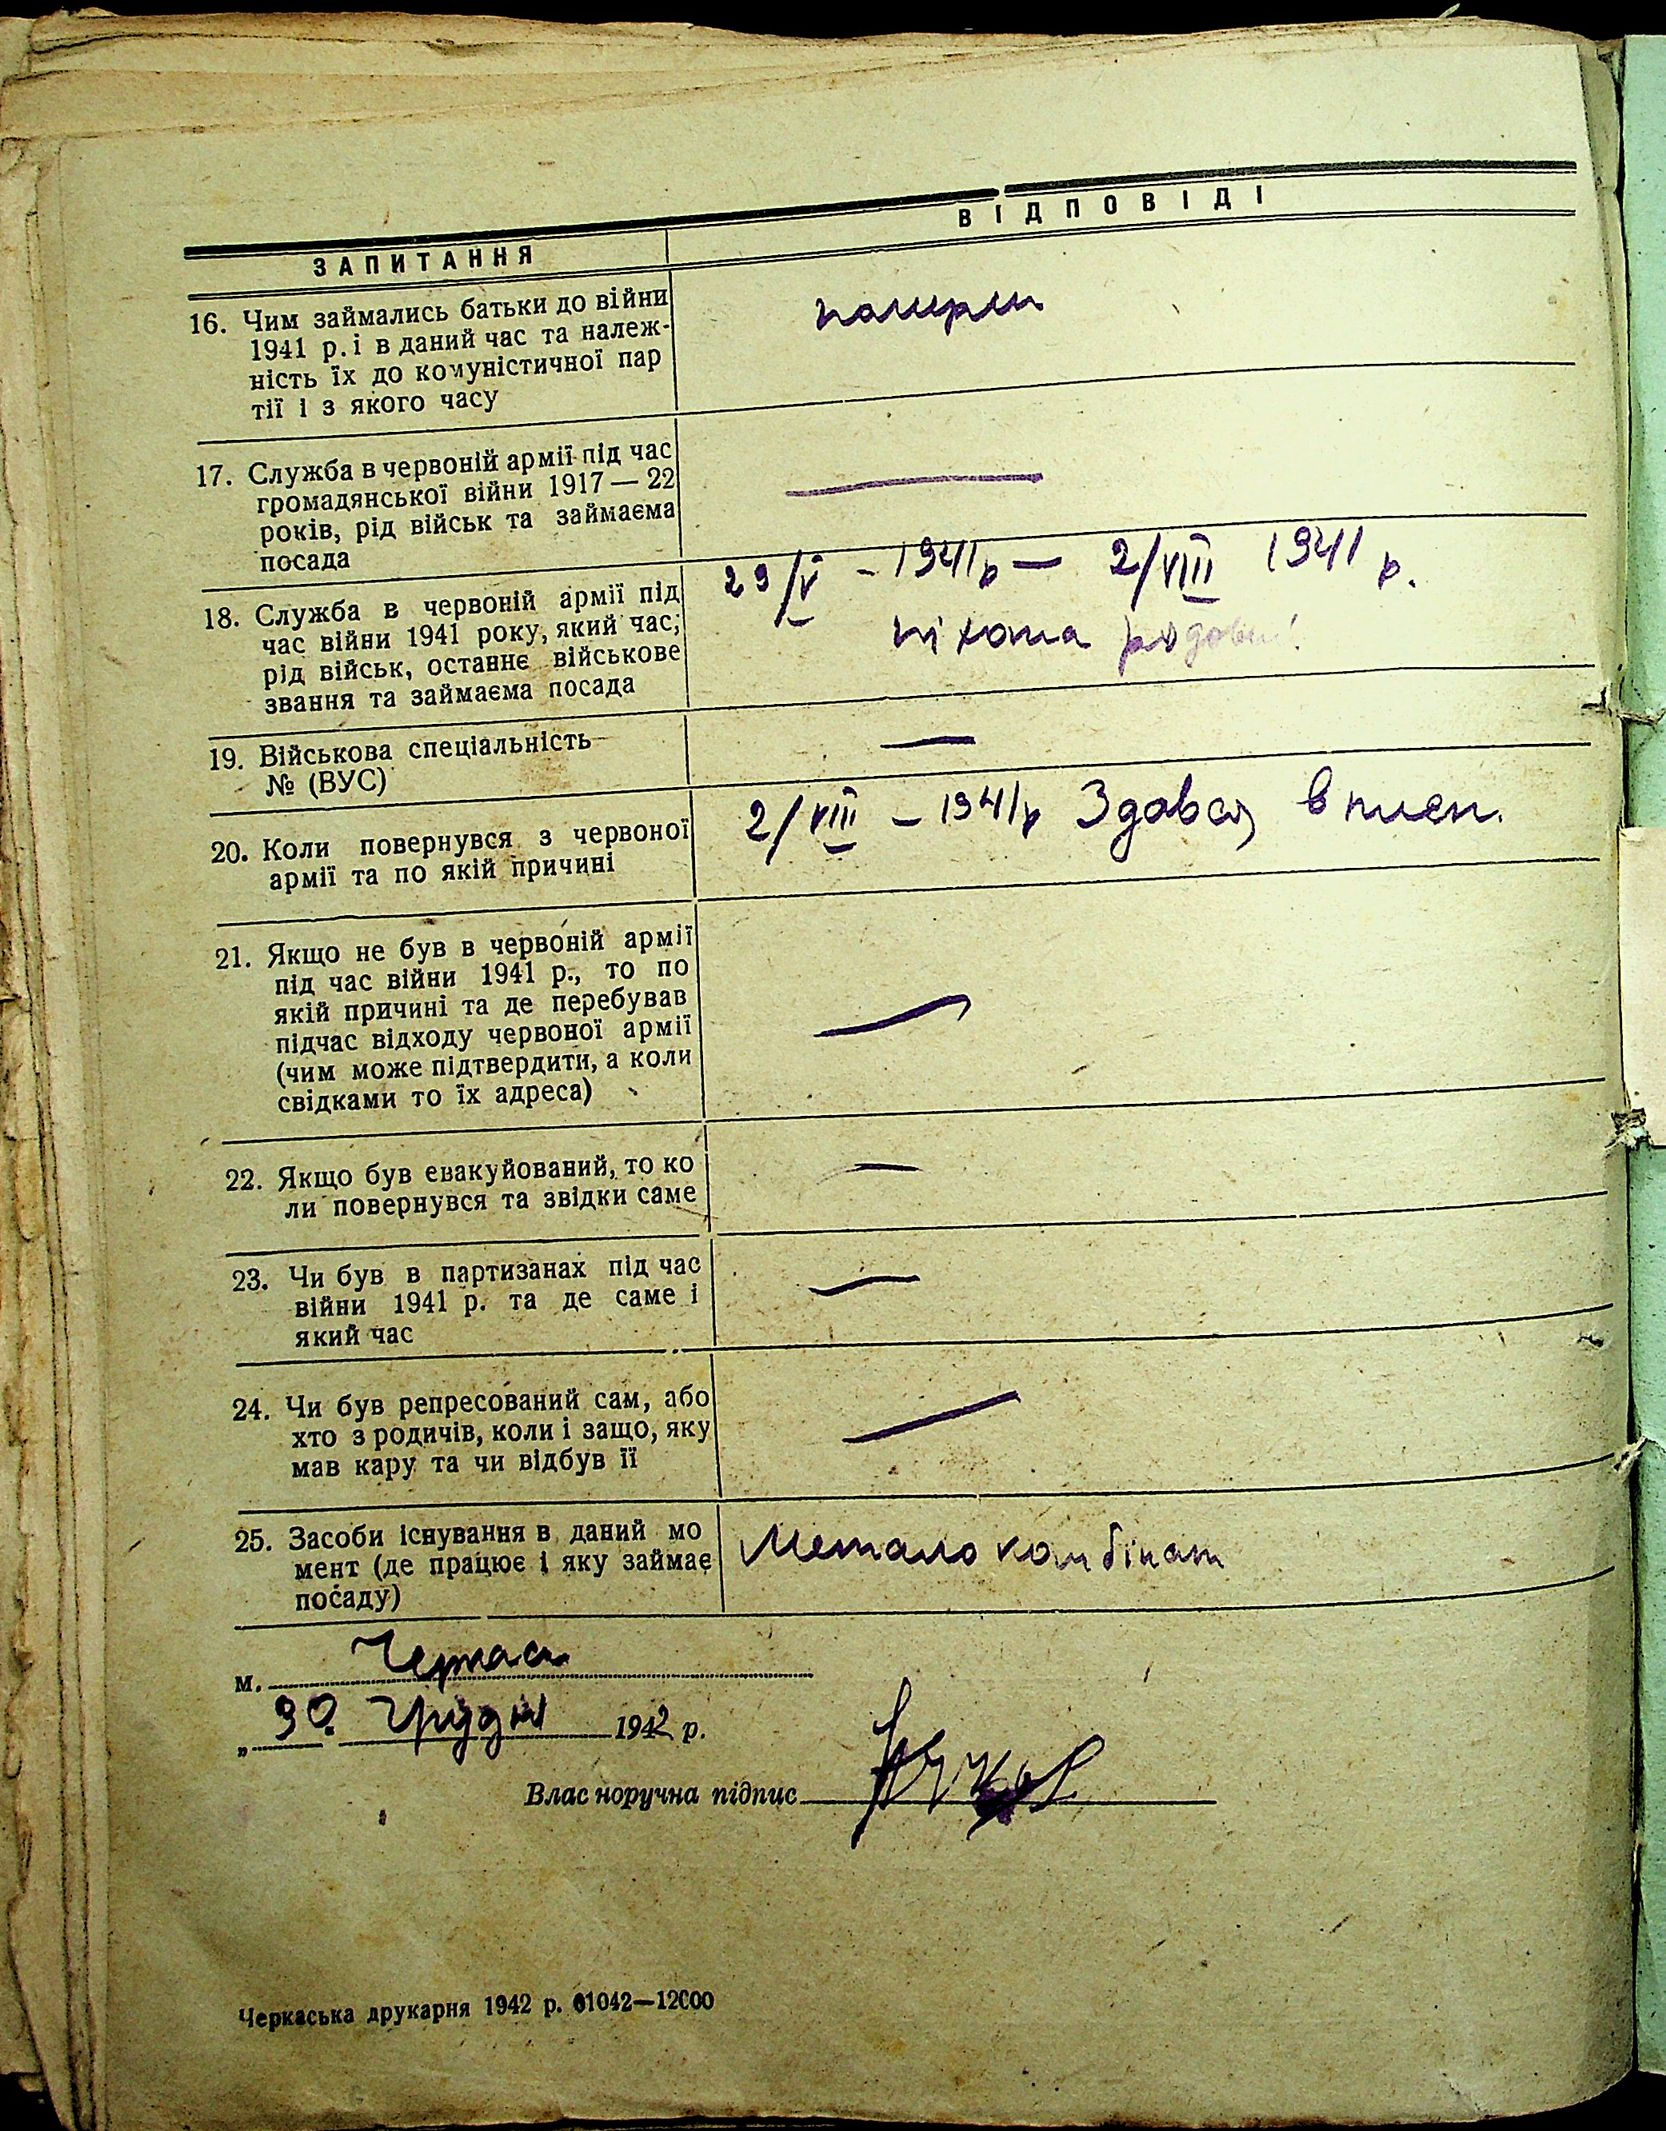 ЗАПИТАННЯ
ВІДПОВІДІ
16. Чим займались батьки до війни
1941 р. і в даний час та належ-
ність їх до комуністичної пар
тії і з якого часу
померли
17. Служба в червоній армії під час
громадянської війни 1917 — 22
років, рід військ та займаєма
посада
—
18. Служба в червоній армії під
час війни 1941 року, який час,
рід військ, останнє військове
звання та займаєма посада
29/V - 1941 р — 2/VIII 1941 р.
піхота рядовий
19. Військова спеціальність
№ (ВУС)
—
20. Коли повернувся з червоної
армії та по якій причині
2/VIII – 1941 р Здався в плен.
21. Якщо не був в червоній армії
під час війни 1941 р., то по
якій причині та де перебував
підчас відходу червоної армії
(чим може підтвердити, а коли
свідками то їх адреса)
—
22. Якщо був евакуйований, то ко
ли повернувся та звідки саме
—
23. Чи був в партизанах під час
війни 1941 р. та де саме і
який час
—
24. Чи був репресований сам, або
хто з родичів, коли і защо, яку
мав кару та чи відбув її
—
25. Засоби існування в даний мо
мент (де працює і яку займає
посаду)
Метало комбінат
м. Черкаси
„ 30. Грудня 1942 р.
Влас норучна підпис
Черкаська друкарня 1942 р. 61042—12000